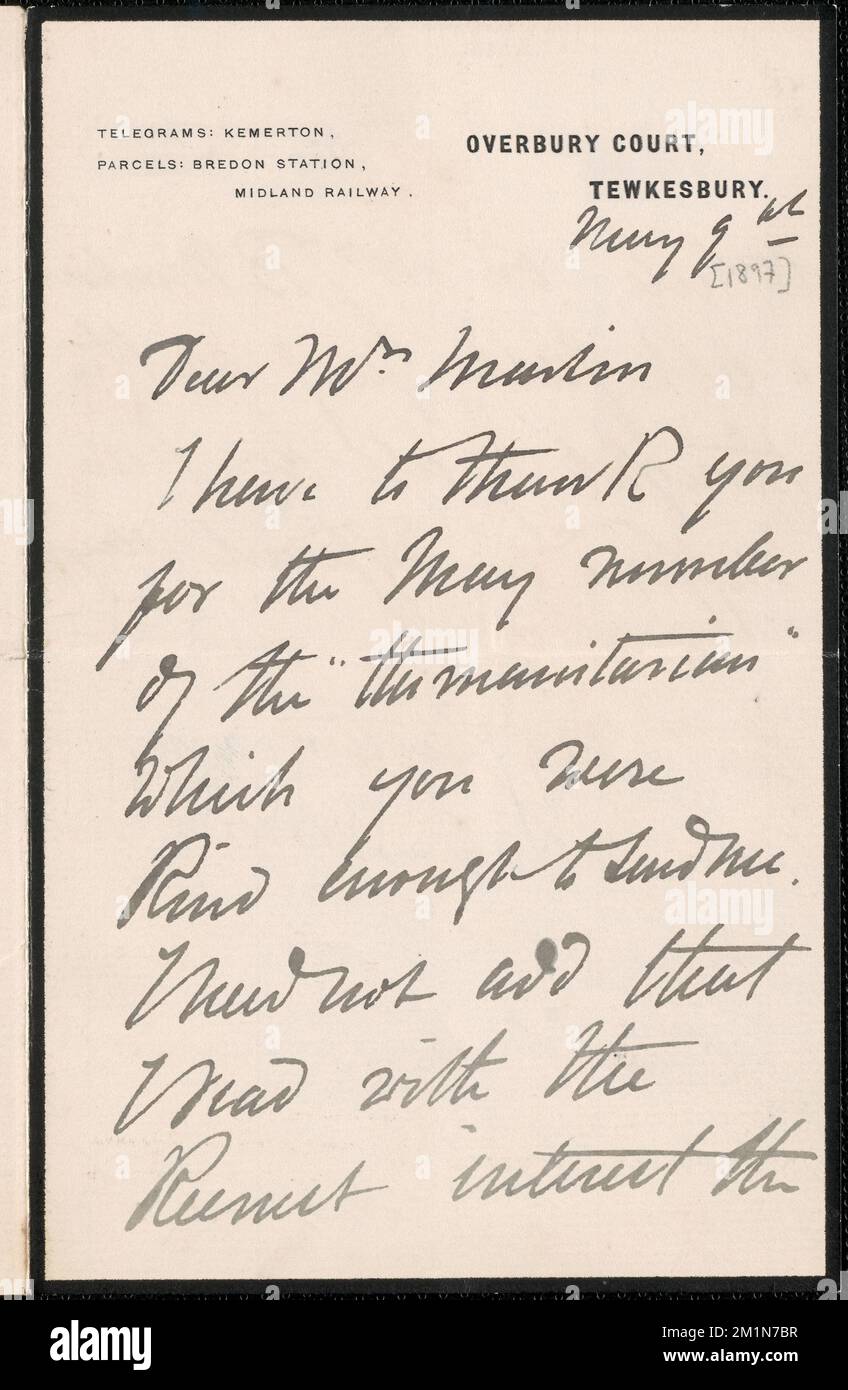 TELEGRAMS: KEMERTON,
PARCELS: BREDON STATION,
MIDLAND RAILWAY.
OVERBURY COURT,
TEWKESBURY.
May 9th
[1897]
Dear Mrs Martin
I have to thank you
for the May number
of the "Humanitarian"
which you were
kind enough to send me.
I need not add that
I read with the
keenest interest the
alamy
Image ID: 2M1N7BR
www.alamy.com